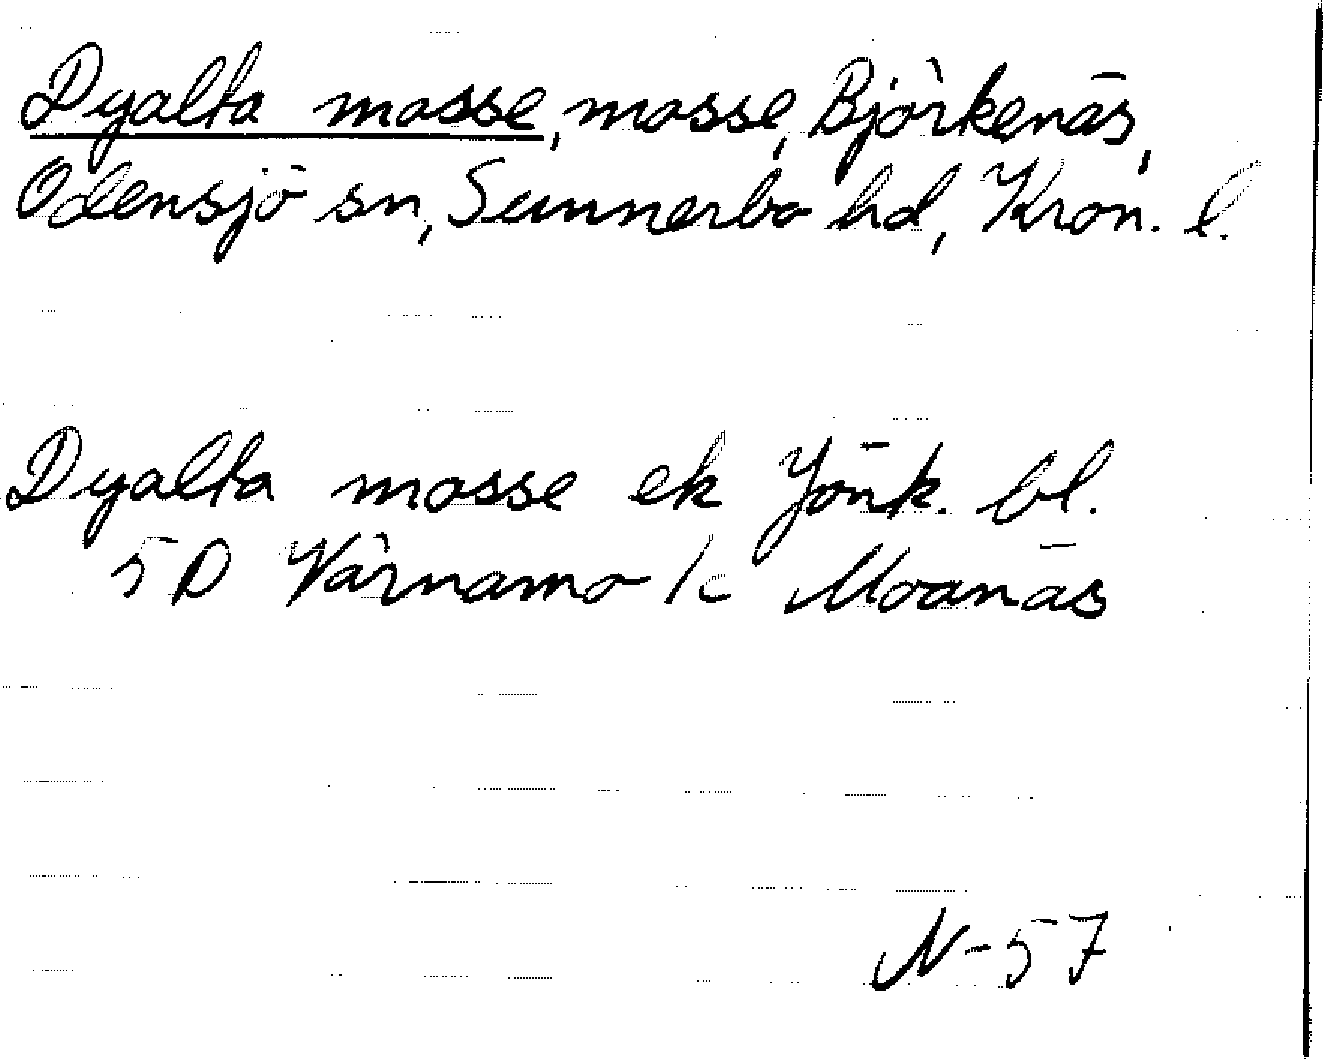 Dyalta mosse, mosse, Björkenäs,
Odensjö sn, Sunnerbo hd, Kron. l.
Dyalta mosse ek Jönk. bl.
5D Värnamo 1c Moanäs
N-57